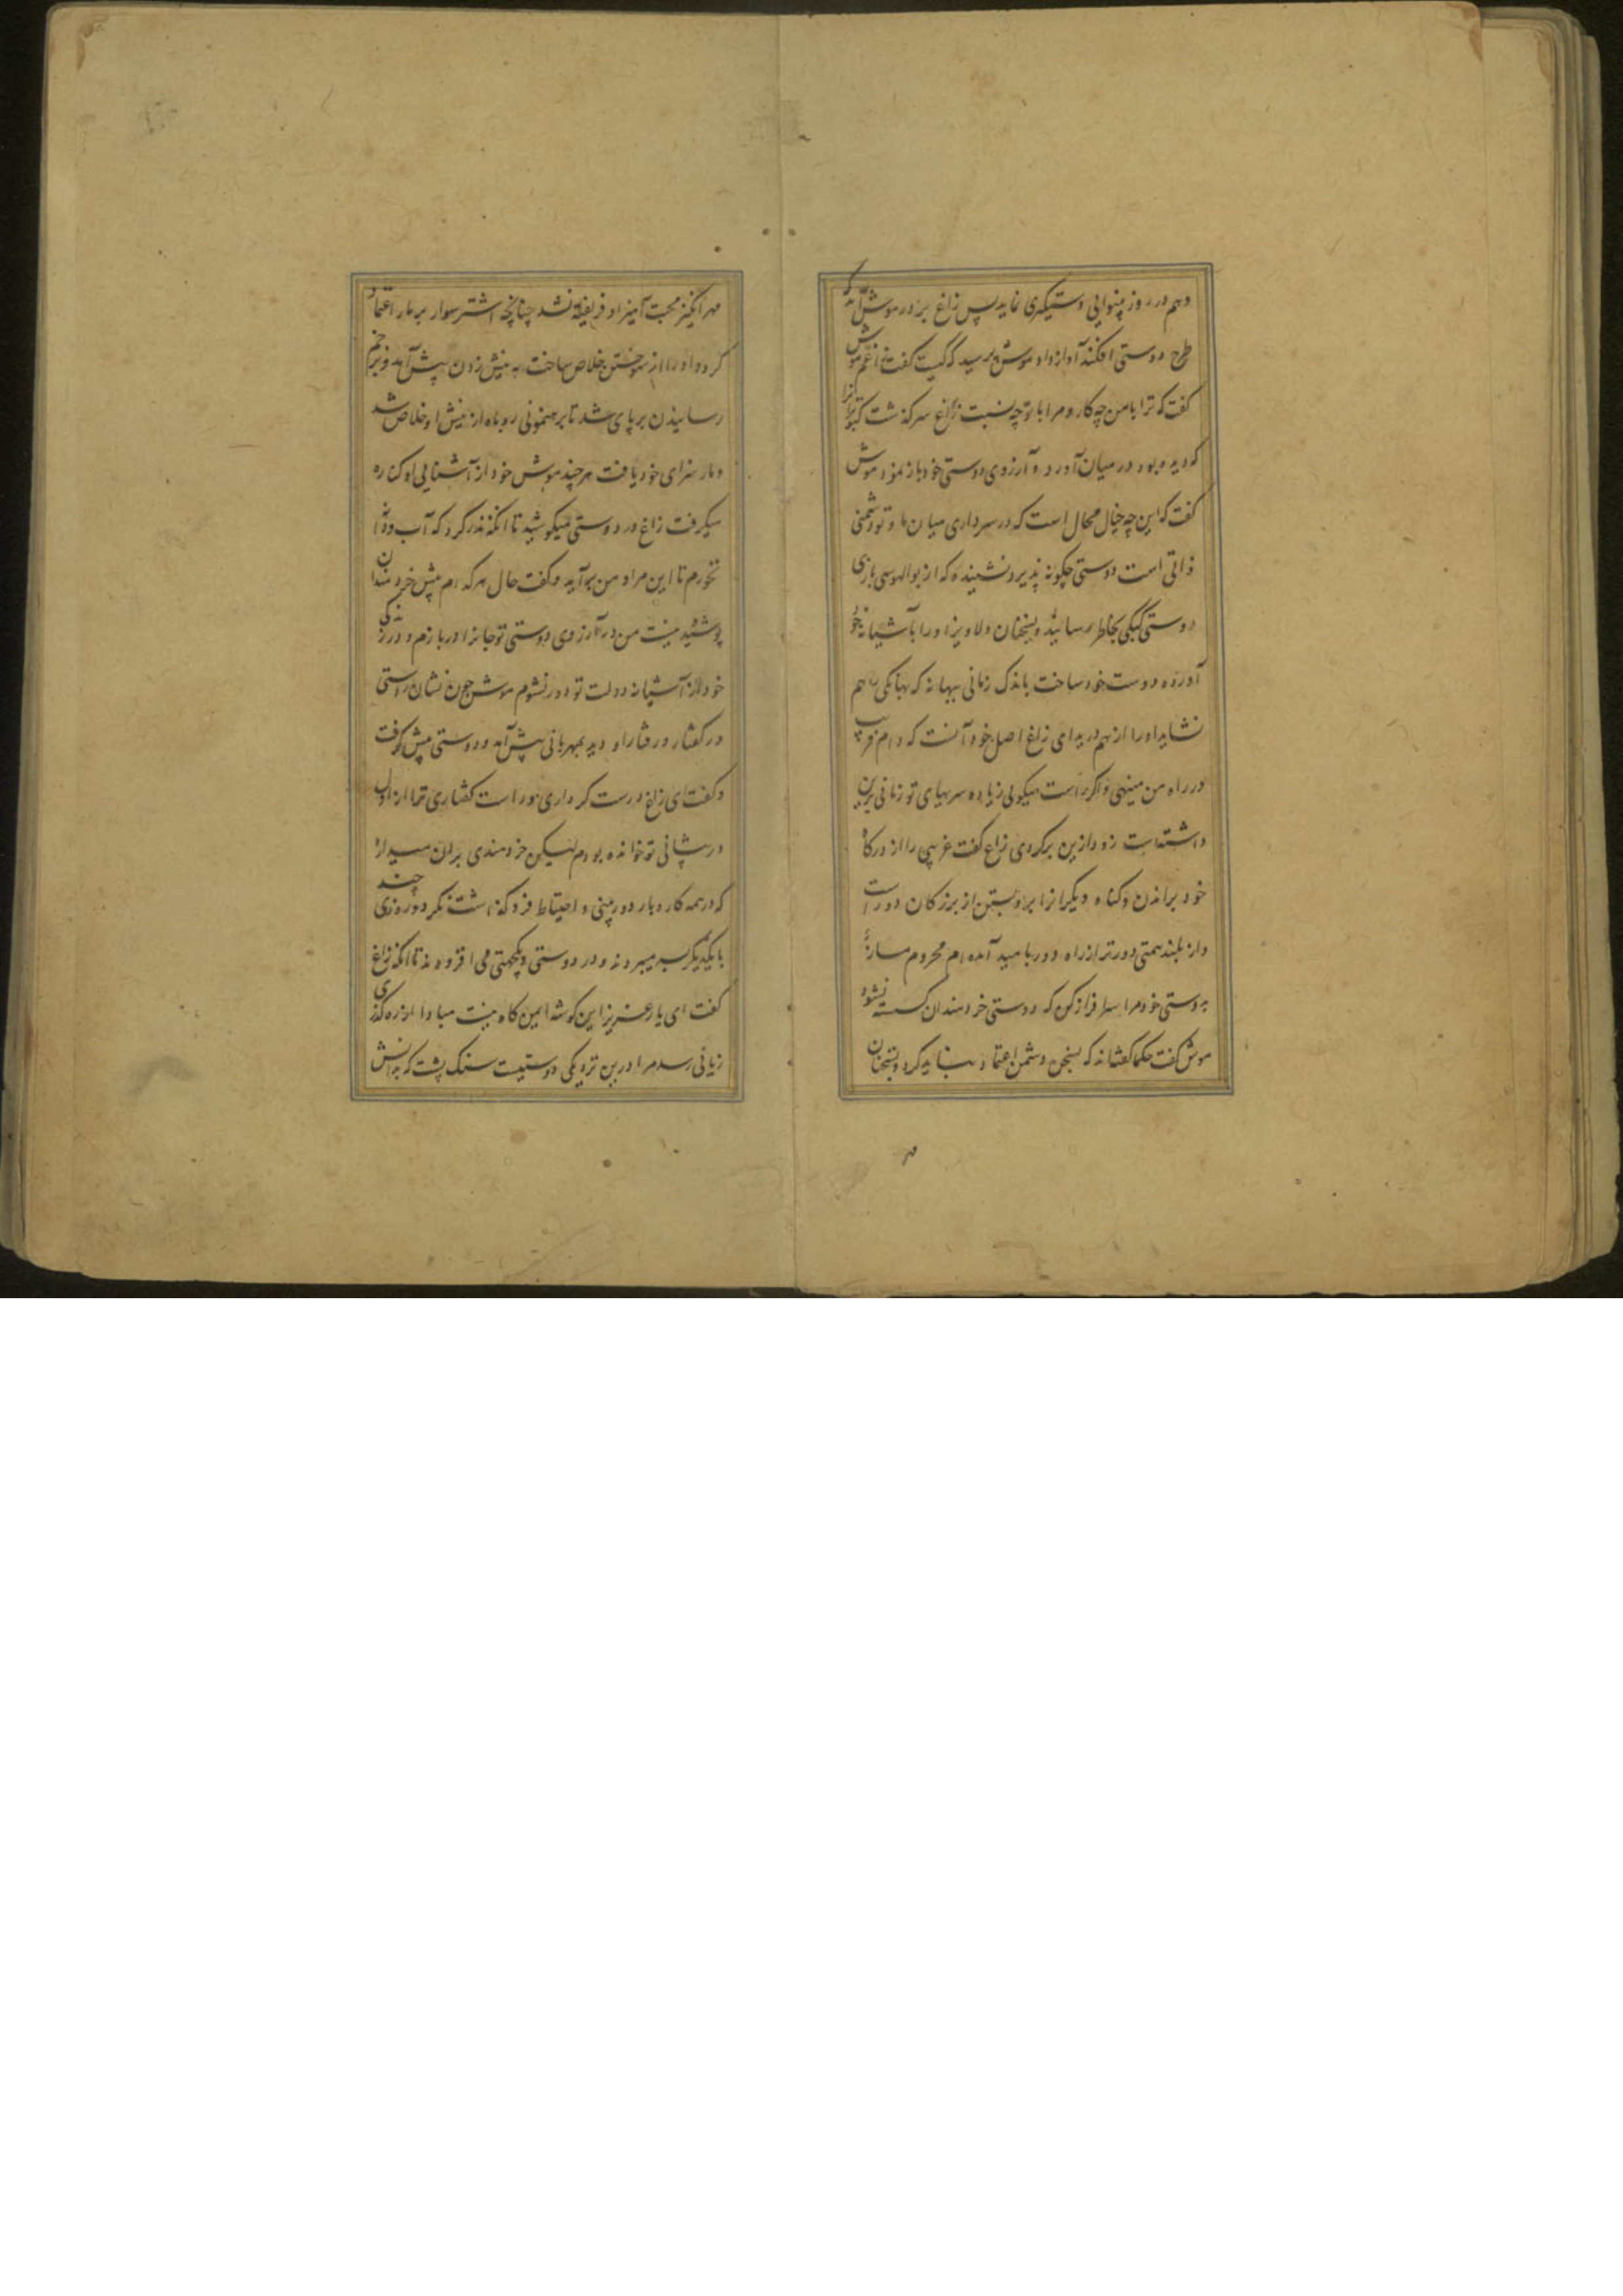 دهم در روز بینوایی دستیکری نماید پس زاغ بر در موش آمد که
طرح دوستی افکند آواز داد موش پرسید که کیست کفت زاغم موش
کفت که ترا بامن چه کار و مرا با تو چه نسبت زاغ سرکذشت کبوترانرا
که دیده بود در میان آورد و آرزوی دوستی خود باز نمود موش
کفت که این چه خیال محال است که در سر داری میان ما و تو دشمنی
ذاتی است دوستی چکونه پذیرد نشنیده که از بوالهوسی بازی
دوستی کبکی بخاطر رسانید و بسخنان دلاویز او را بآشیانه خود
آورده دوست خود ساخت باندک زمانی ببهانه که بهانکی را هم
نشاید او را از هم درید ای زاغ اصل خود آنست که دام فریب
در راه من مینهی و اکر راست میکویی زیاده سربهای تو زمانی برین
داشته است زود ازین برکردی زاغ کفت غریبی را از درکاه
خود براندن و کناه دیکرانرا برو بستن از بزرکان دور است
و از بلند همتی دورتر از راه دور بامید آمده ام محروم مساز
بدوستی خود مرا سرافراز کن که دوستی خردمندان کسسته نشود
موش کفت حکما کفته‌اند که بسخن دشمن اعتماد نباید کرد و بسخنان
مهر انکیز محبت آمیز او فریفته نشد چنانچه اشتر سوار بر مار اعتماد
کرد و او را از سوختن خلاص ساخت به نیش زدن پیش آمد و بزخم
رسانیدن بر پای شد تا برهنمونی روباه از نیش او خلاص شد
و مار سزای خود یافت هر چند موش خود از آشنایی او کناره
میکرفت زاغ در دوستی میکوشید تا انکه نذر کرد که آب و دانه
نخورم تا این مراد من برآید و کفت حال هر کدام پیش خردمندان
پوشیده نیست من در آرزوی دوستی تو جانرا در بازم و در زندکی
خود از آشیانه دولت تو دور نشوم موش چون نشان راستی
در کفتار و رفتار او دید بمهربانی پیش آمد و دوستی پیش کرفت
و کفت ای زاغ درست کرداری و راست کفتاری ترا از اول
در پیشانی تو خوانده بودم لیکن خردمندی بران میدارد
که در همه کار و بار دوربینی و احتیاط فرو کذاشت نکرد و روزی چند
بایکدیکر بسر میبردند و در دوستی و یکجهتی می افزودند تا انکه زاغ
کفت ای یار عزیز این کوشه ایمن کاه نیست مبادا از ره کذری
زیانی رسد مرا درین نزدیکی دوستیست سنک پشت که بدانش